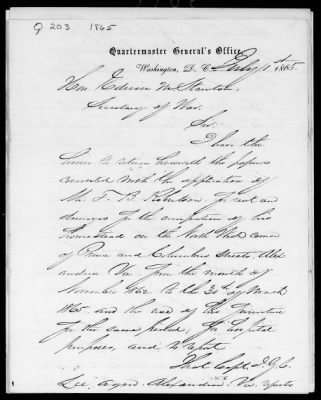 Q 203 1865
Quartermaster General's Office,
Washington, D. C. July 1st 1865.
Hon Edwin M Stanton,
Secretary of War.
Sir:
I have the
honor to return herewith the papers
connected with the application of
Mr. F. B. Robertson for rent and
damages for the occupation of his
homestead on the North West corner
of Prince and Columbus Streets, Alex
andria Va from the month of
November 1862 to the 30th of March
1865, and the use of his furniture
for the same period, for hospital
purposes, and to report
That Capt J. G. C.
Lee, a.q.m. Alexandria Va reports